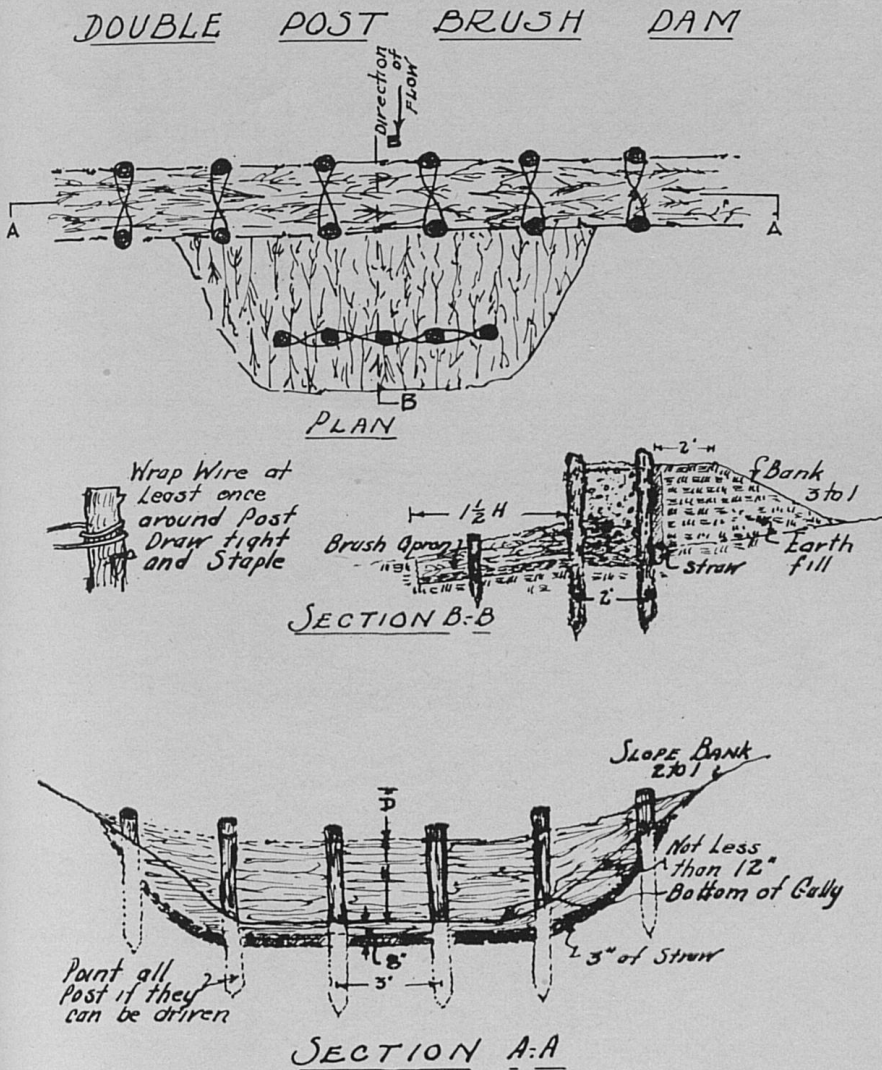 DOUBLE POST BRUSH DAM
Direction of
FLOW
B
A
A
B
PLAN
Wrap Wire at
Least once
around Post
Draw tight
and Staple
1½ H
Brush Apron
2'
Bank
3 to 1
Earth
fill
Straw
2'
SECTION B-B
SLOPE BANK
2 to 1
D
Not Less
than 12"
Bottom of Gully
3" of Straw
8"
3'
Point all
Post if they
can be driven
SECTION A-A